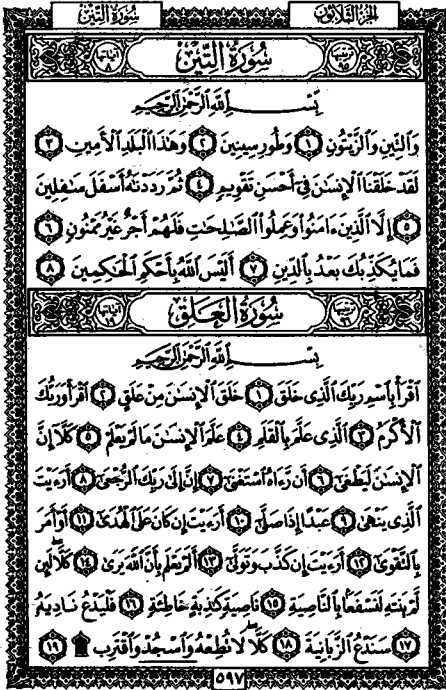 سُورَةُ التِّينِ الجُزْءُ الثَّلَاثُونَ
آيَاتُهَا ٨ سُورَةُ التِّينِ تَرْتِيبُهَا ٩٥
بِسْمِ ٱللَّهِ ٱلرَّحْمَٰنِ ٱلرَّحِيمِ
وَٱلتِّينِ وَٱلزَّيْتُونِ ١ وَطُورِ سِينِينَ ٢ وَهَٰذَا ٱلْبَلَدِ ٱلْأَمِينِ ٣
لَقَدْ خَلَقْنَا ٱلْإِنسَٰنَ فِىٓ أَحْسَنِ تَقْوِيمٍ ٤ ثُمَّ رَدَدْنَٰهُ أَسْفَلَ سَٰفِلِينَ
٥ إِلَّا ٱلَّذِينَ ءَامَنُوا۟ وَعَمِلُوا۟ ٱلصَّٰلِحَٰتِ فَلَهُمْ أَجْرٌ غَيْرُ مَمْنُونٍ ٦
فَمَا يُكَذِّبُكَ بَعْدُ بِٱلدِّينِ ٧ أَلَيْسَ ٱللَّهُ بِأَحْكَمِ ٱلْحَٰكِمِينَ ٨
آيَاتُهَا ١٩ سُورَةُ العَلَقِ تَرْتِيبُهَا ٩٦
بِسْمِ ٱللَّهِ ٱلرَّحْمَٰنِ ٱلرَّحِيمِ
ٱقْرَأْ بِٱسْمِ رَبِّكَ ٱلَّذِى خَلَقَ ١ خَلَقَ ٱلْإِنسَٰنَ مِنْ عَلَقٍ ٢ ٱقْرَأْ وَرَبُّكَ
ٱلْأَكْرَمُ ٣ ٱلَّذِى عَلَّمَ بِٱلْقَلَمِ ٤ عَلَّمَ ٱلْإِنسَٰنَ مَا لَمْ يَعْلَمْ ٥ كَلَّآ إِنَّ
ٱلْإِنسَٰنَ لَيَطْغَىٰٓ ٦ أَن رَّءَاهُ ٱسْتَغْنَىٰٓ ٧ إِنَّ إِلَىٰ رَبِّكَ ٱلرُّجْعَىٰٓ ٨ أَرَءَيْتَ
ٱلَّذِى يَنْهَىٰ ٩ عَبْدًا إِذَا صَلَّىٰٓ ١٠ أَرَءَيْتَ إِن كَانَ عَلَى ٱلْهُدَىٰٓ ١١ أَوْ أَمَرَ
بِٱلتَّقْوَىٰٓ ١٢ أَرَءَيْتَ إِن كَذَّبَ وَتَوَلَّىٰٓ ١٣ أَلَمْ يَعْلَم بِأَنَّ ٱللَّهَ يَرَىٰ ١٤ كَلَّا لَئِن
لَّمْ يَنتَهِ لَنَسْفَعًۢا بِٱلنَّاصِيَةِ ١٥ نَاصِيَةٍ كَٰذِبَةٍ خَاطِئَةٍ ١٦ فَلْيَدْعُ نَادِيَهُۥ
١٧ سَنَدْعُ ٱلزَّبَانِيَةَ ١٨ كَلَّا لَا تُطِعْهُ وَٱسْجُدْ وَٱقْتَرِب ۩ ١٩
٥٩٧